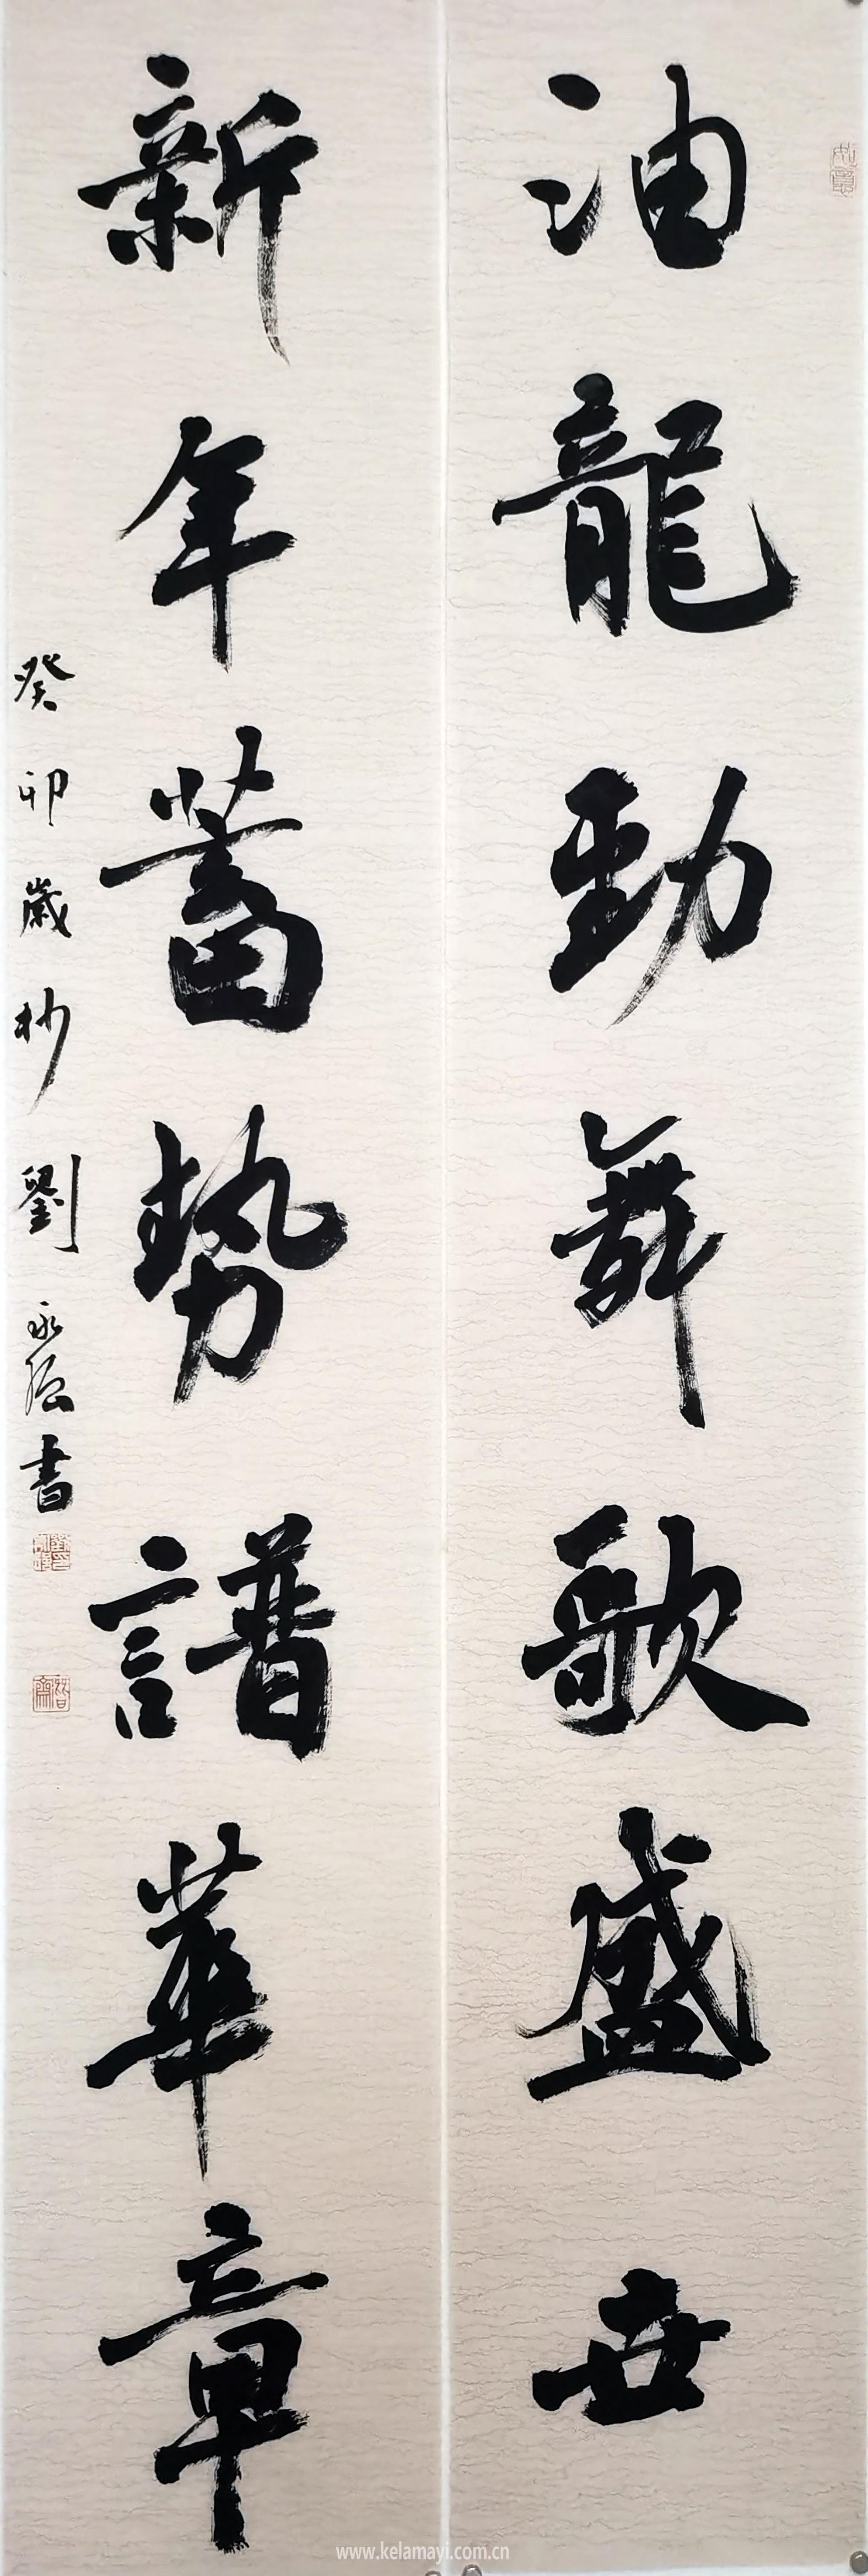 油龍勁舞歌盛世
新年蓄勢譜華章
癸卯歲杪劉永強書
www.kelamayi.com.cn